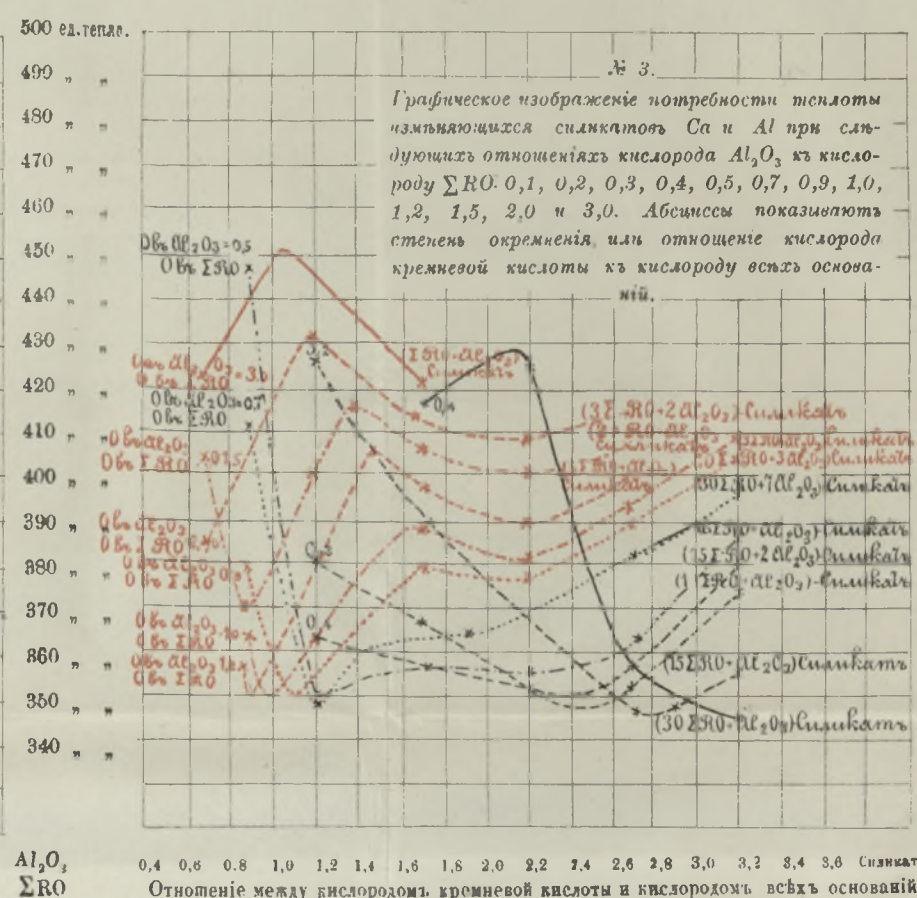 500 ед. тепло.
490 „ „
480 „ „
470 „ „
460 „ „
450 „ „
440 „ „
430 „ „
420 „ „
410 „ „
400 „ „
390 „ „
380 „ „
370 „ „
360 „ „
350 „ „
340 „ „
№ 3.
Графическое изображеніе потребности теплоты
измѣняющихся силикатовъ Ca и Al при слѣ-
дующихъ отношеніяхъ кислорода Al₂O₃ къ кисло-
роду ∑RO. 0,1, 0,2, 0,3, 0,4, 0,5, 0,7, 0,9, 1,0,
1,2, 1,5, 2,0 и 3,0. Абсциссы показываютъ
степень окремненія или отношеніе кислорода
кремневой кислоты къ кислороду всѣхъ основа-
ній.
О въ Al₂O₃=0,5
О въ ΣRO
О въ Al₂O₃=3,0
О въ ΣRO
О въ Al₂O₃=0,7
О въ ΣRO
О въ Al₂O₃
О въ ΣRO 1,5
О въ Al₂O₃
О въ ΣRO
О въ Al₂O₃
О въ ΣRO
О въ Al₂O₃
О въ ΣRO
О въ Al₂O₃ 1,2
О въ ΣRO
0,4
(ΣRO+Al₂O₃)
Силикатъ
(3ΣRO+2Al₂O₃)-Силикатъ
Силикатъ
Силикатъ
(30ΣRO+7Al₂O₃)Силикатъ
(15ΣRO+2Al₂O₃)-Силикатъ
(15ΣRO+Al₂O₃)Силикатъ
(30ΣRO+Al₂O₃)Силикатъ
Al₂O₃
∑RO
0,4 0,6 0,8 1,0 1,2 1,4 1,6 1,8 2,0 2,2 2,4 2,6 2,8 3,0 3,2 3,4 3,6 Силикат
Отношеніе между кислородомъ кремневой кислоты и кислородомъ всѣхъ основаній